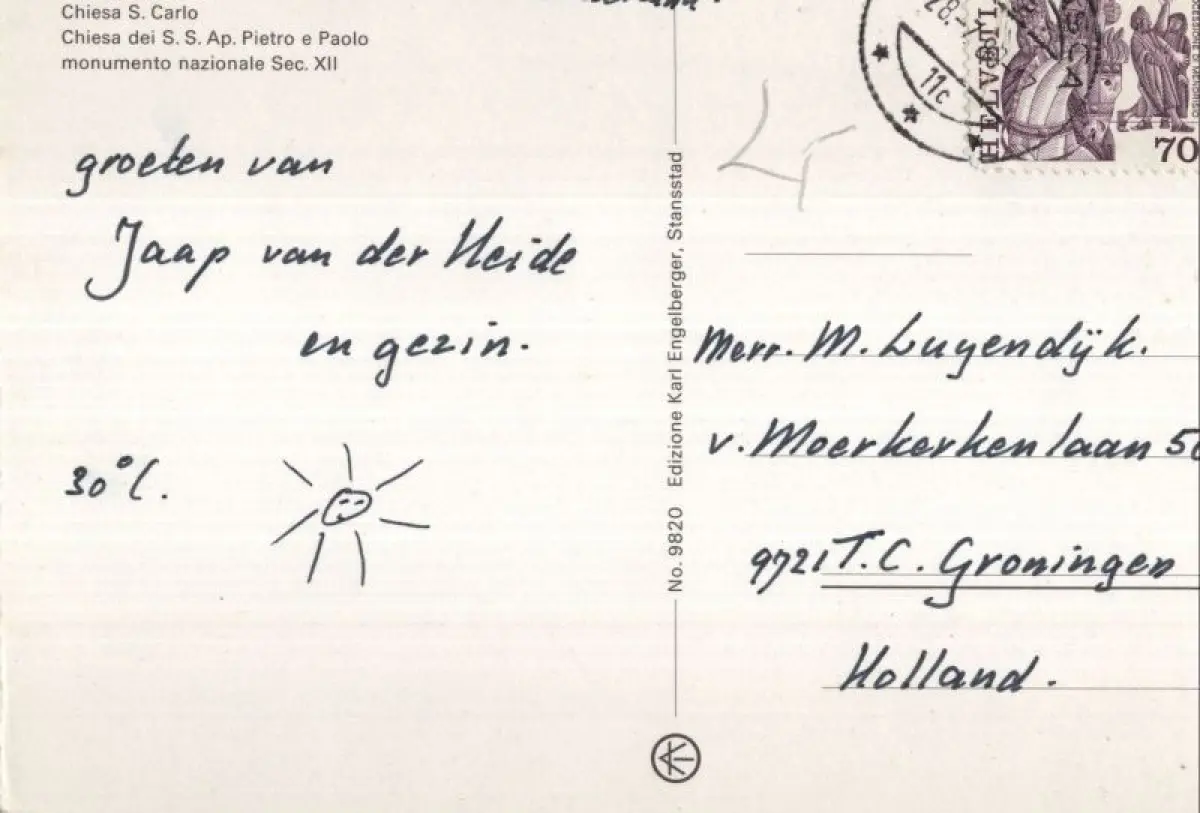 Chiesa S. Carlo
Chiesa dei S. S. Ap. Pietro e Paolo
monumento nazionale Sec. XII
groeten van
Jaap van der Heide
en gezin.
30°C.
No. 9820 Edizione Karl Engelberger, Stansstad
28.
11c
ASCA
HELVETIA
70
Merr. M. Luyendijk.
v. Moerkerkenlaan
9721 T.C. Groningen
Holland.